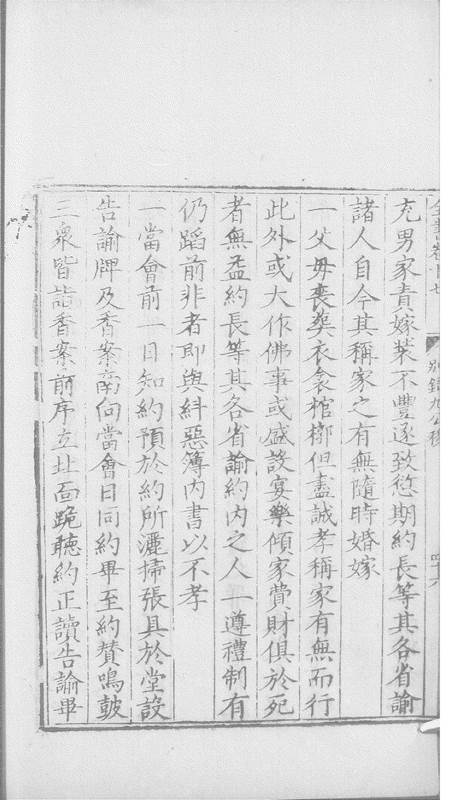 全書卷十七 別錄九公移 四十六
充男家責嫁裝不豐遂致愆期約長等其各省諭
諸人自今其稱家之有無隨時婚嫁
一父母喪𦵏衣衾棺槨但盡誠孝稱家有無而行
此外或大作佛事或盛設宴樂傾家費財俱於死
者無益約長等其各省諭約内之人一遵禮制有
仍蹈前非者即與糾惡簿内書以不孝
一當會前一日知約預於約所灑掃張具於堂設
告諭牌及香案南向當會日同約畢至約賛鳴鼓
三衆皆詣香案前序立北面跪聽約正讀告諭畢